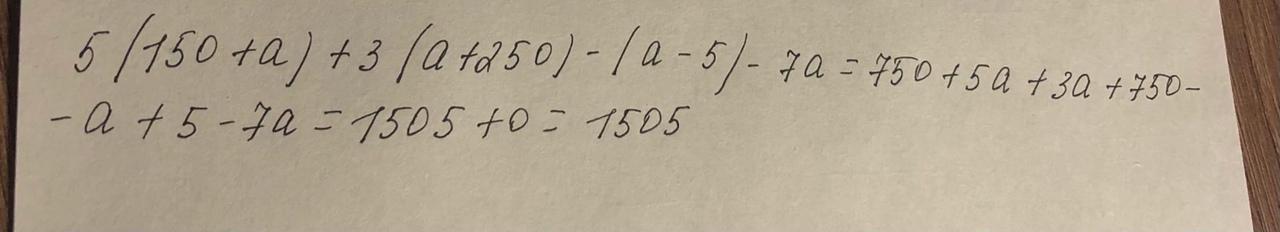 5(150+a)+3(a+250)-(a-5)-7a=750+5a+3a+750-
-a+5-7a=1505+0=1505